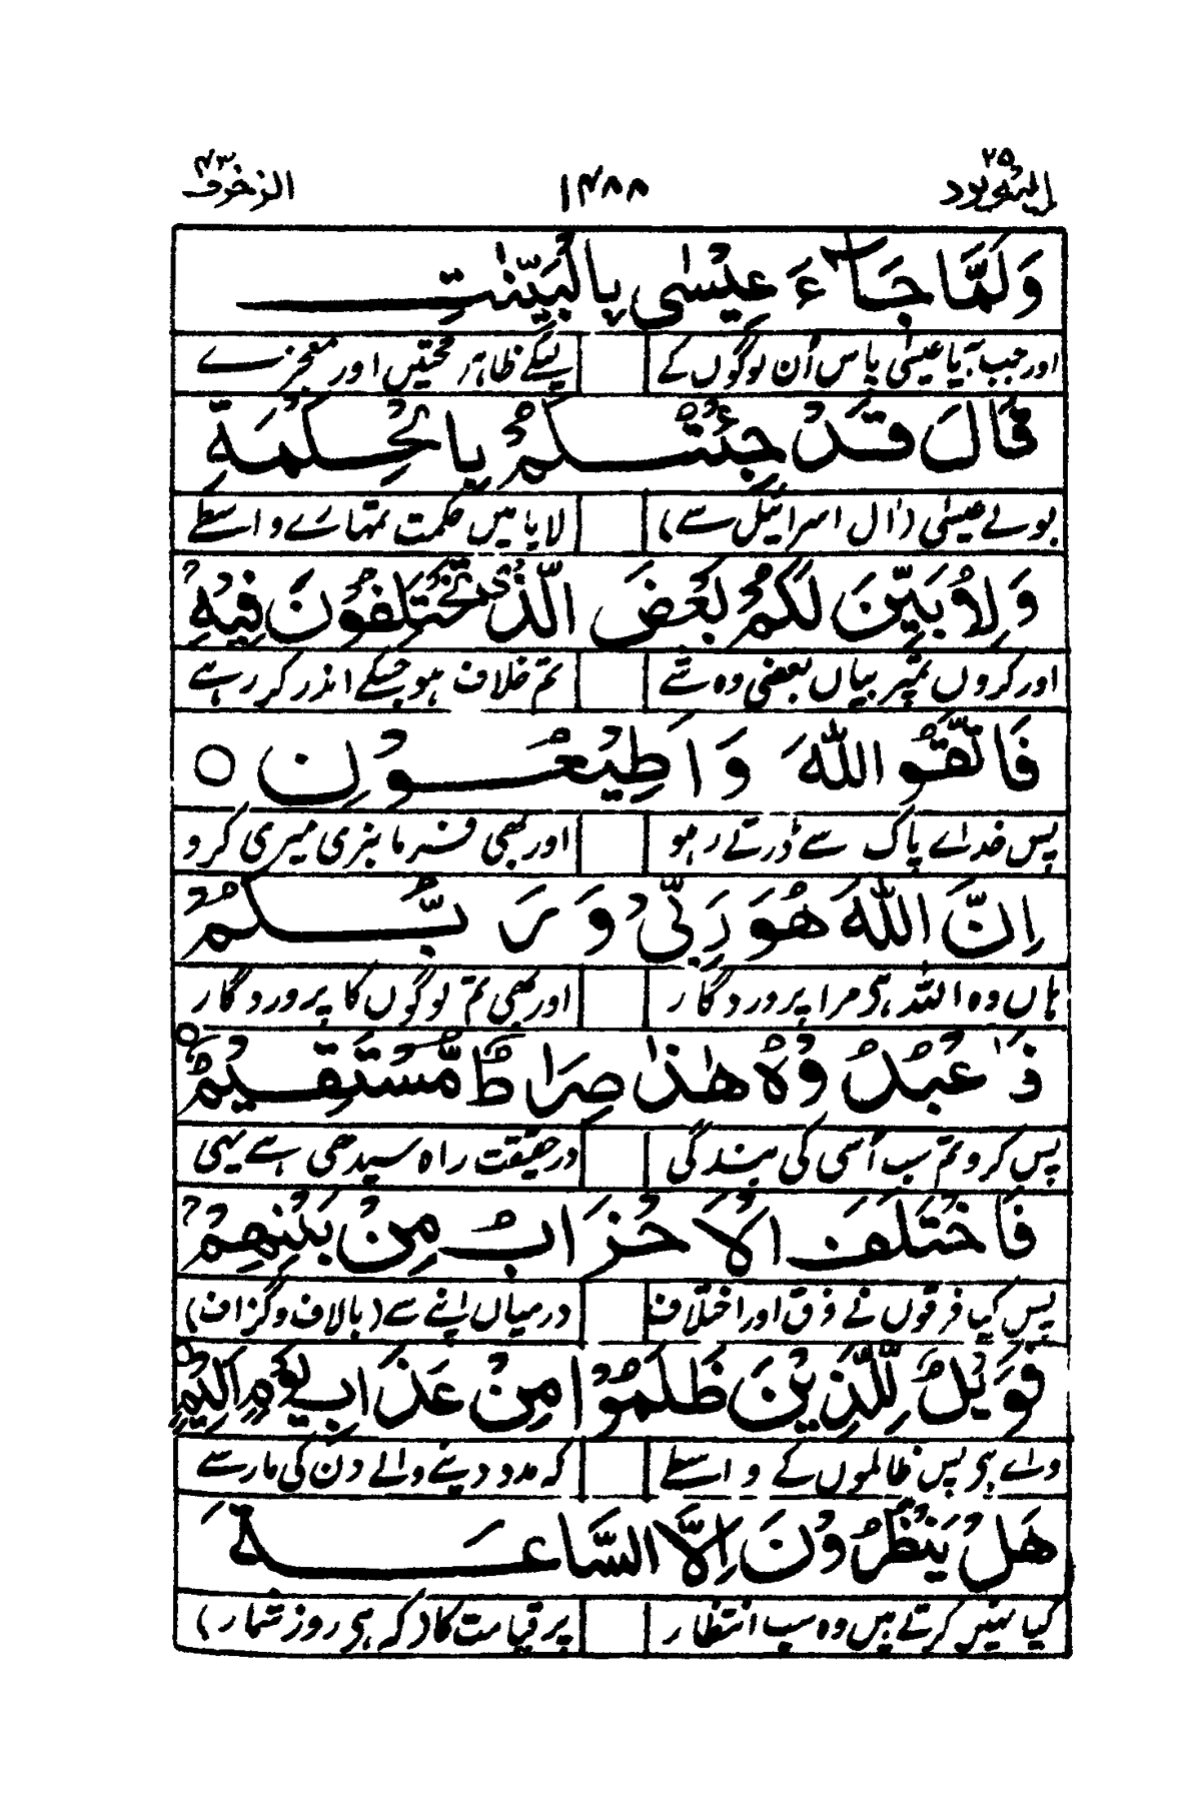 الیہ یرد ٢٥ ١٤٨٨ الزخرف ٤٣
وَلَمَّا جَآءَ عِيْسٰى بِالْبَيِّنٰتِ
اور جب آیا عیسٰی پاس اُن لوگوں کے لیکے ظاہر حجتیں اور معجزے
قَالَ قَدْ جِئْتُكُمْ بِالْحِكْمَةِ
بولے عیسٰی (اٰل اسرائیل سے) لایا میں حکمت تمہارے واسطے
وَلِاُبَيِّنَ لَكُمْ بَعْضَ الَّذِيْ تَخْتَلِفُوْنَ فِيْهِ
اور کروں تمپر بیاں بعضی وہ شے تم خلاف ہو جسکے اندر کر رہے
فَاتَّقُو اللّٰهَ وَاَطِيْعُوْنِ ○
پس خداے پاک سے ڈرتے رہو اور بھی فرمانبری میری کرو
اِنَّ اللّٰهَ هُوَ رَبِّيْ وَرَبُّكُمْ
ہاں وہ اللہ ہی مرا پروردگار اور بھی تم لوگوں کا پروردگار
فَاعْبُدُوْهُ هٰذَا صِرَاطٌ مُّسْتَقِيْمٌ ○
پس کرو تم سب اُسی کی بندگی درحقیقت راہ سیدھی ہے یہی
فَاخْتَلَفَ الْاَحْزَابُ مِنْ بَيْنِهِمْ
پس کیا فرقوں نے فرق اور اختلاف درمیاں اپنے سے (بالاف و گزاف)
فَوَيْلٌ لِّلَّذِيْنَ ظَلَمُوْا مِنْ عَذَابِ يَوْمٍ اَلِيْمٍ ○
واے ہی پس ظالموں کے واسطے کہ مدد دینے والے دن کی مار سے
هَلْ يَنْظُرُوْنَ اِلَّا السَّاعَةَ
کیا نہیں کرتے ہیں وہ سب انتظار پر قیامت کا (کہ ہی روز شمار)